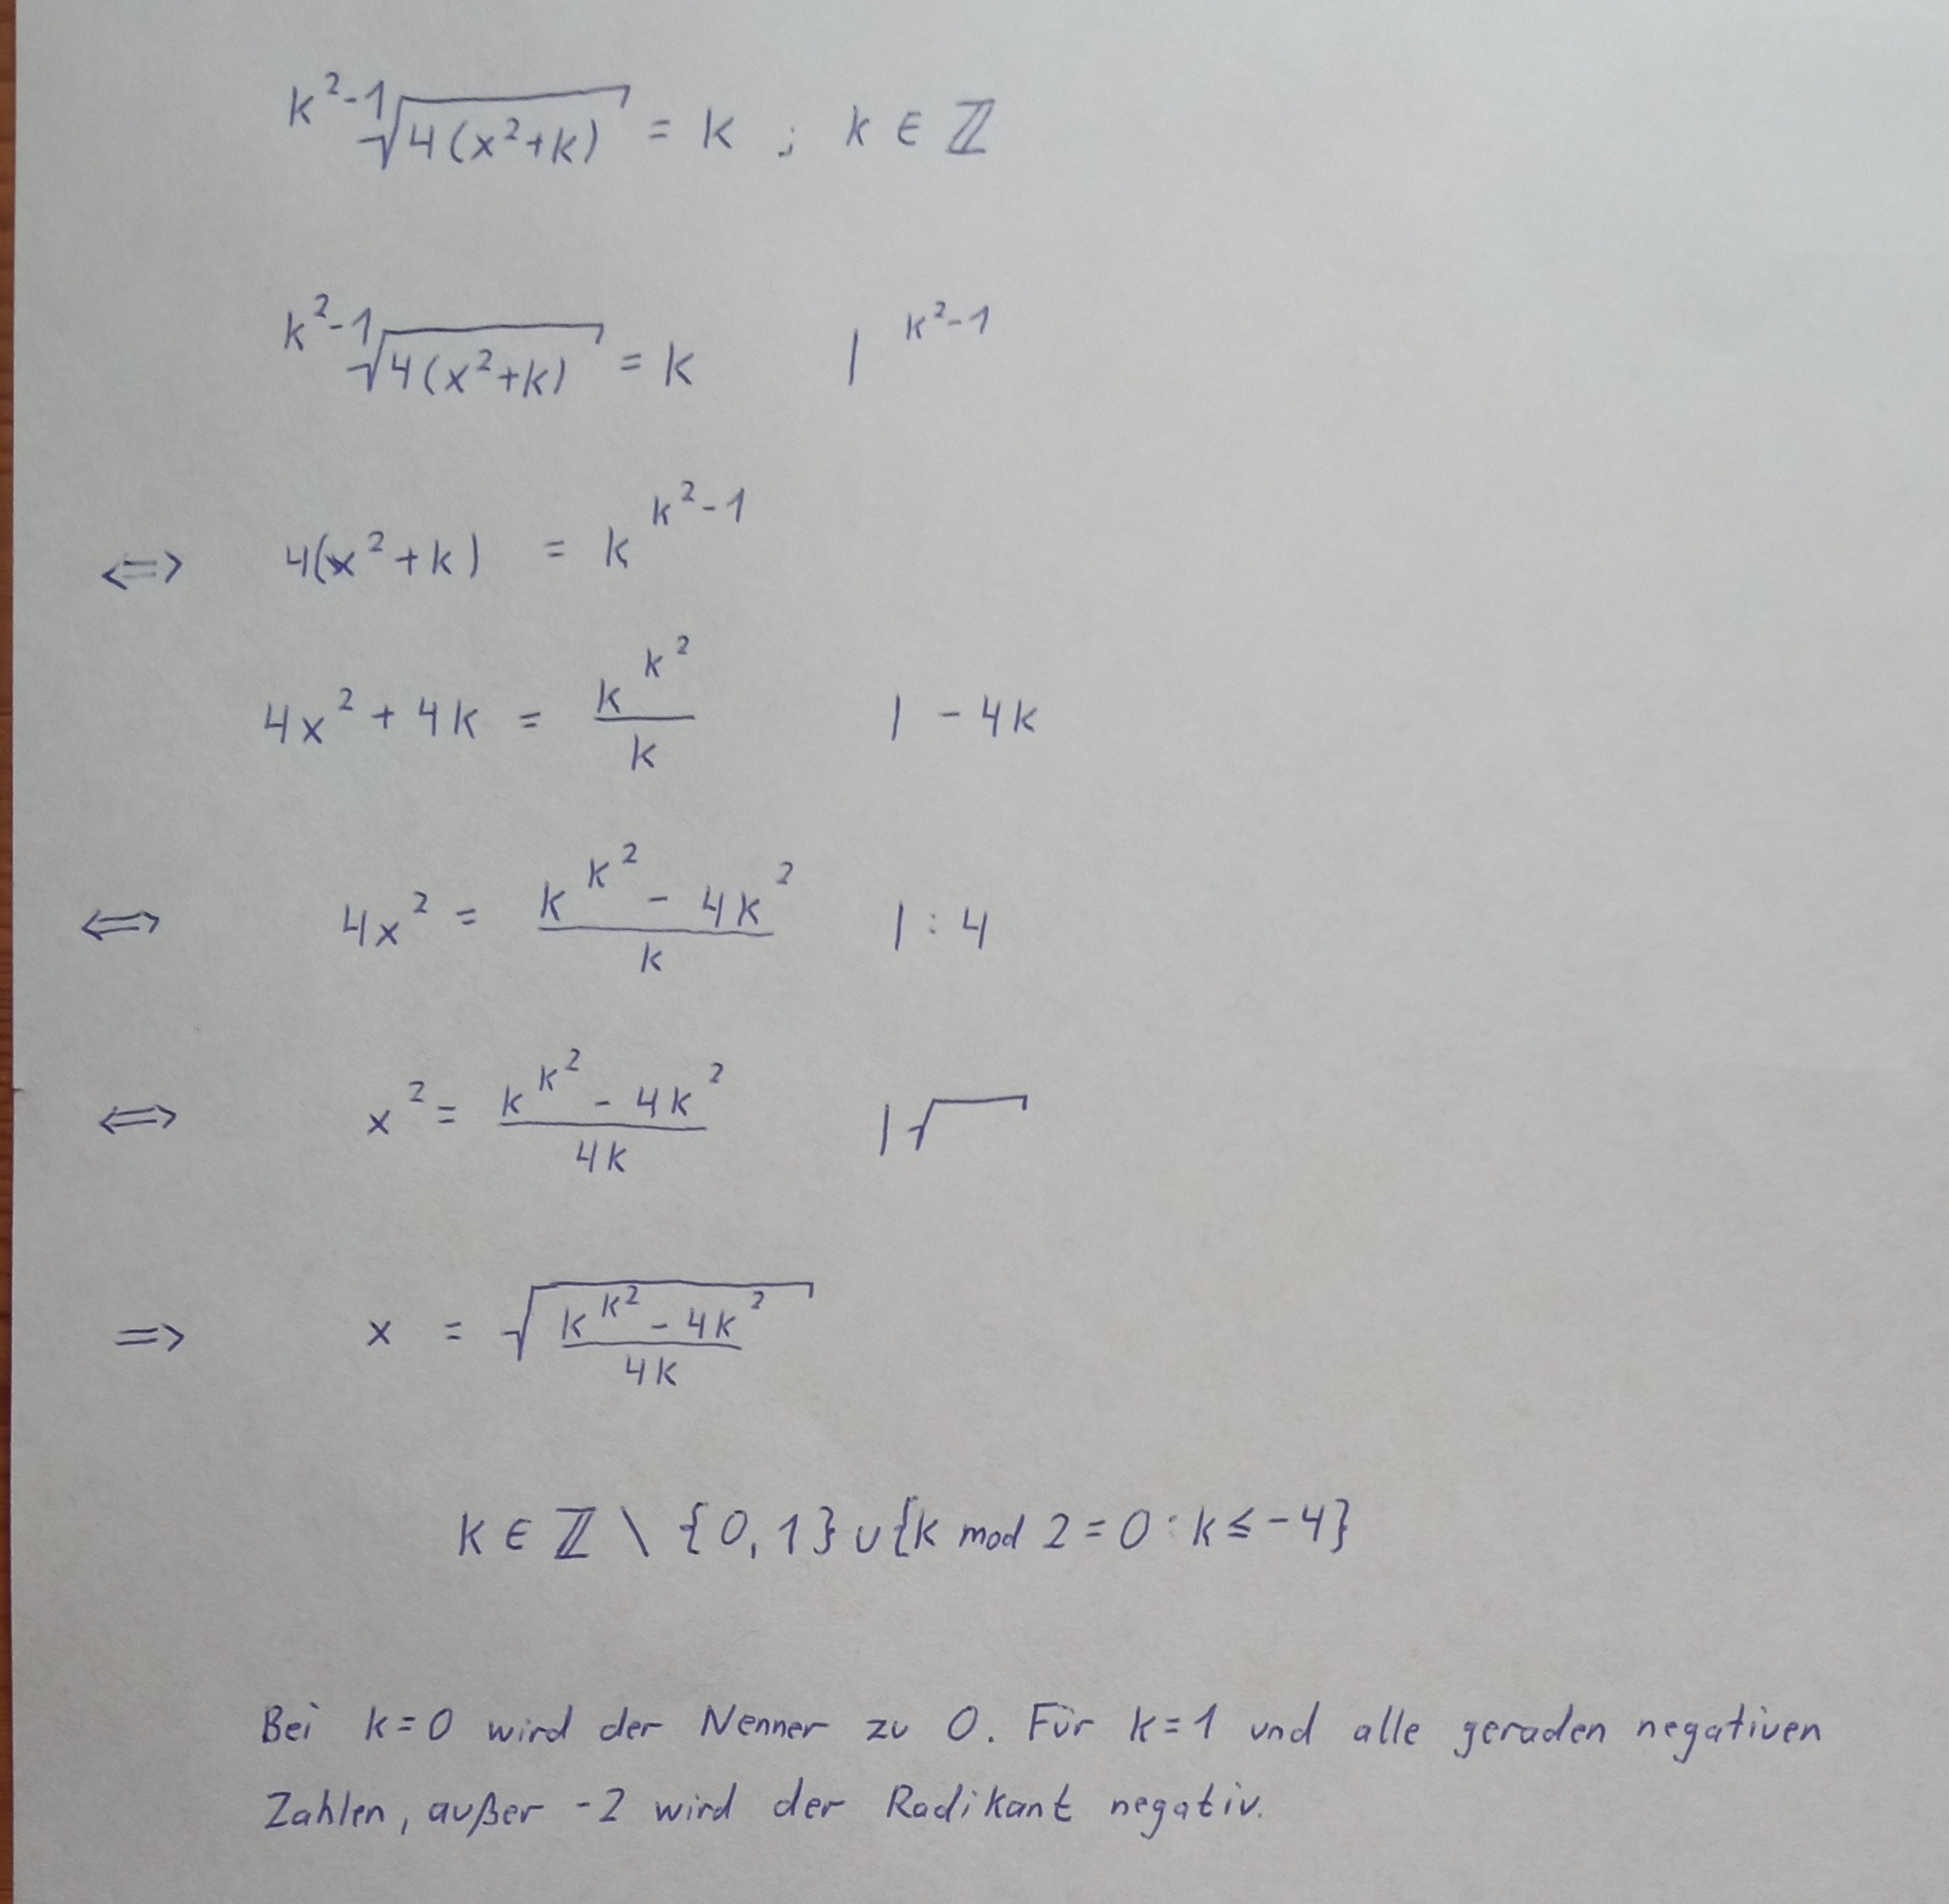 $\sqrt[k^2-1]{4(x^2+k)} = k \; ; \; k \in \mathbb{Z}$
$\sqrt[k^2-1]{4(x^2+k)} = k \quad | \; ^{k^2-1}$
$\Leftrightarrow \quad 4(x^2+k) = k^{k^2-1}$
$4x^2 + 4k = \frac{k^{k^2}}{k} \quad | \; -4k$
$\Leftrightarrow \quad 4x^2 = \frac{k^{k^2} - 4k^2}{k} \quad | : 4$
$\Leftrightarrow \quad x^2 = \frac{k^{k^2} - 4k^2}{4k} \quad | \sqrt{\;}$
$\Rightarrow \quad x = \sqrt{\frac{k^{k^2} - 4k^2}{4k}}$
$k \in \mathbb{Z} \setminus \{0, 1\} \cup \{k \bmod 2 = 0 : k \leq -4\}$
Bei k=0 wird der Nenner zu 0. Für k=1 und alle geraden negativen
Zahlen, außer -2 wird der Radikant negativ.